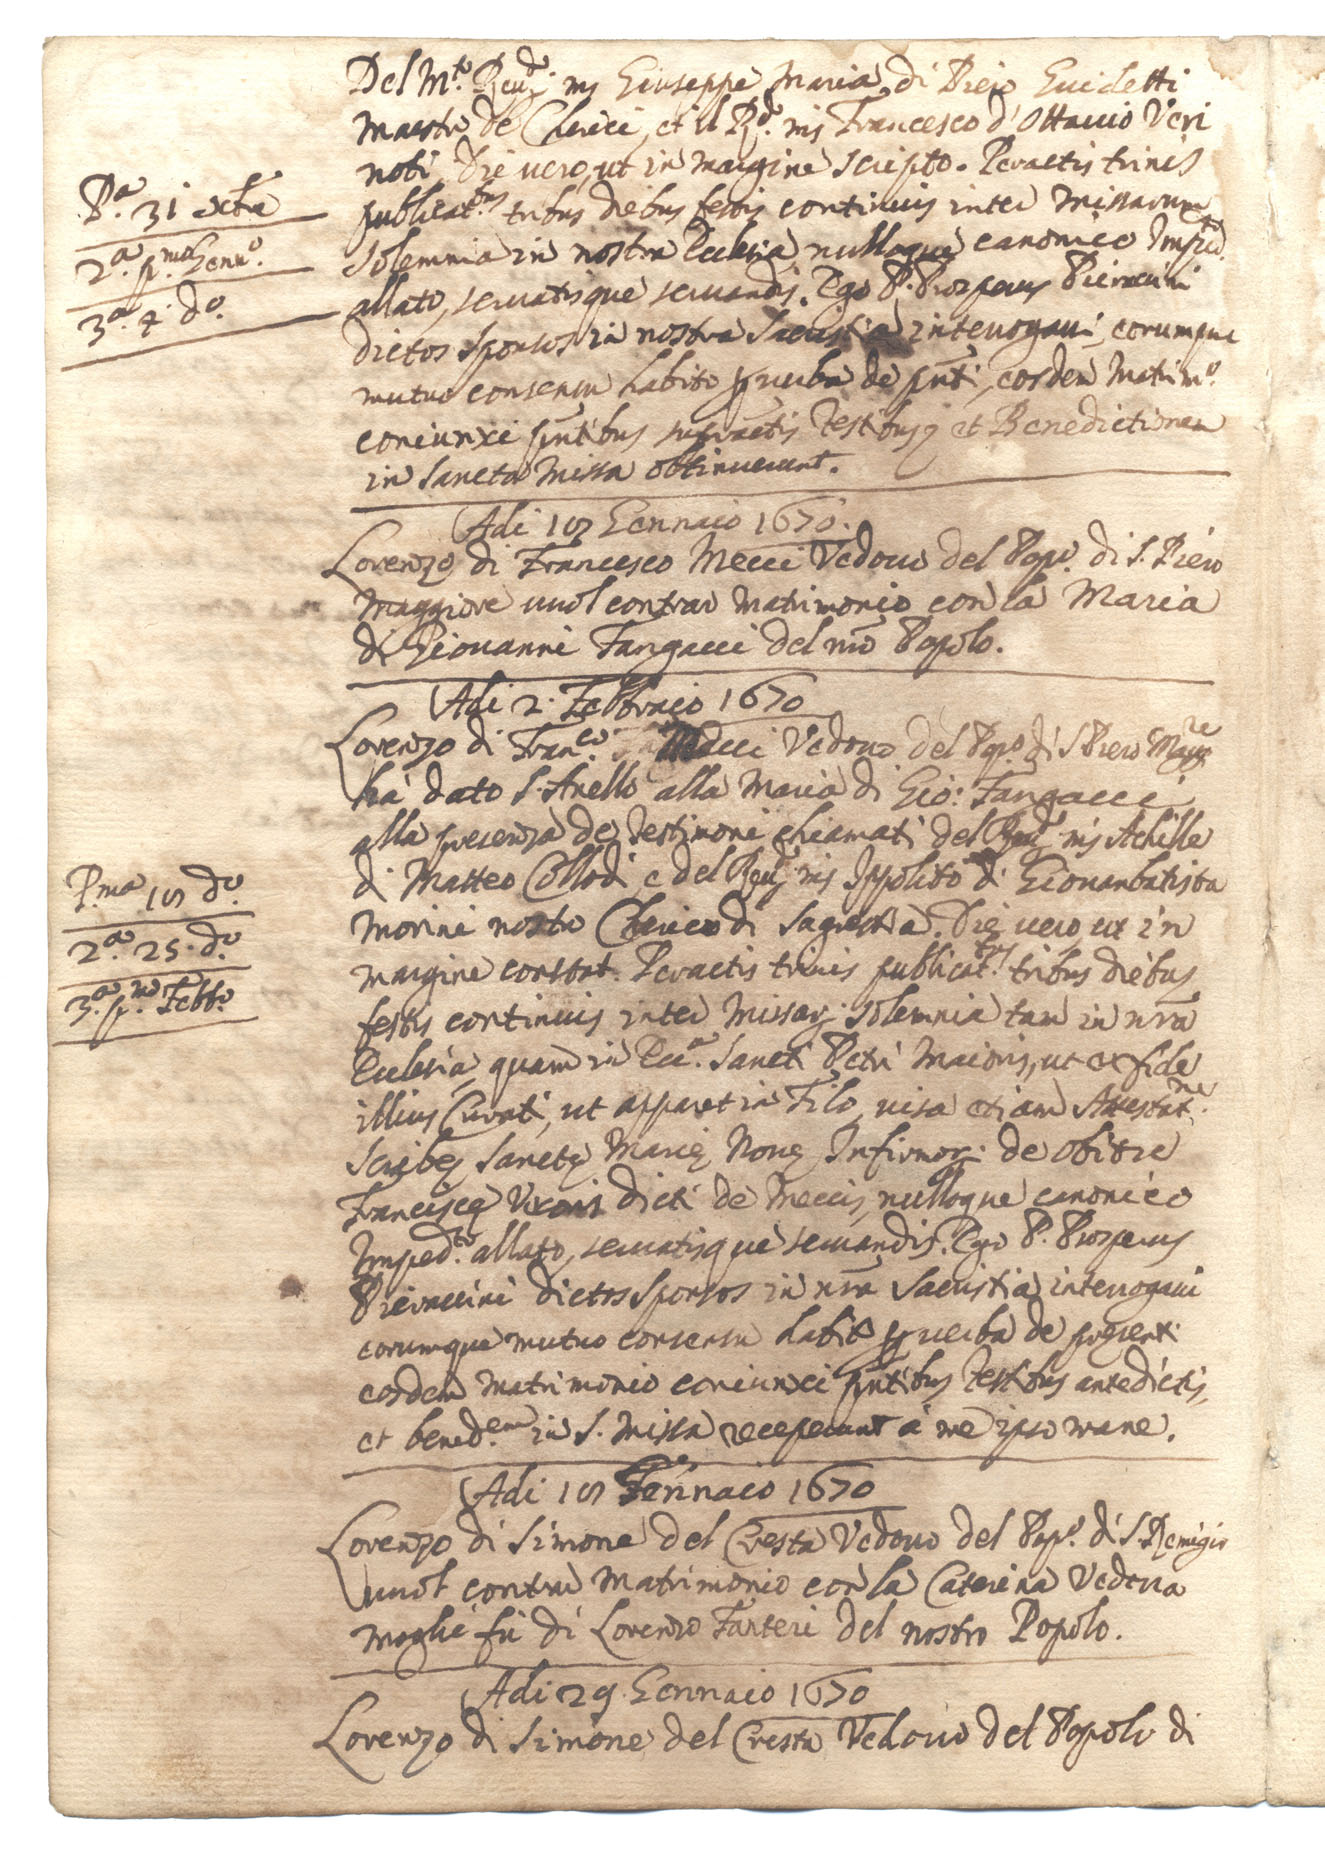 Del m.to Reu.do ms Giuseppe Maria di Piero Guidetti
Maestro de Cherici, et il R.do ms Francesco d'Ottauio Veri
noti. Die uero, ut in margine scripto. Peractis trinis
P.a 31 xbre
publicat.bus tribus diebus festis continuis inter missarum
2.a p.mo Genn.o
solemnia in nostra Ecclesia nulloque canonico Imped.to
3.a 4 d.o
allato, seruatisque seruandis. Ego P. Prosperus Pieraccini
dictos sponsos in nostra Sacristia interrogaui, eorumque
mutuo consensu habito p uerba de pnti, eosdem Matrim.o
coniunxi pntibus supradtis Testibus, et Benedictionem
in Sancta Missa obtinuerunt.
Adi 18 Gennaio 1670.
Lorenzo di Francesco Mecci Vedouo del Pop.o di S. Piero
Maggiore uuol contrar Matrimonio con la Maria
di Giouanni Fangacci del nro Popolo.
Adi 2. Febbraio 1670
Lorenzo di Fran.co Mecci Vedouo del Pop.o di S Piero Magg.re
ha dato l'Anello alla Maria di Gio: Fangacci
alla presenza de Testimoni chiamati del Reu.do ms Achille
P.ma 18 d.o
di Matteo Collodi, e del Reu.do ms Ippolito di Giouanbatista
2.a 25. d.o
Morini nostro Cherico di Sagrestia. Die uero ut in
3.a p.mo Febb.o
margine constat. Peractis trinis publicat.bus tribus diebus
festis continuis inter Missar. solemnia tam in nra
Ecclesia, quam in Ecc.a Sancti Petri Maioris, ut ex fide
illius Curati, ut apparet in Filo, uisa etiam Attestat.ne
Scribę Sanctę Marię Nouę Infirmor. de obitu
Franciscę Vxoris dicti de Meccis, nulloque canonico
Imped.to allato, seruatisque seruandis. Ego P. Prosperus
Pieraccini dictos Sponsos in nra Sacristia interrogaui
eorumque mutuo consensu habito p uerba de presenti
eosdem Matrimonio coniunxi pntibus Testibus antedictis,
et bened.em in S. Missa receperunt à me ipso mane.
Adi 18 Gennaio 1670
Lorenzo di Simone del Cresta Vedouo del Pop.o di S. Remigio
uuol contrar Matrimonio con la Caterina Vedoua
moglie fù di Lorenzo Farteri del nostro Popolo.
Adi 29. Gennaio 1670
Lorenzo di Simone del Cresta Vedouo del Popolo di